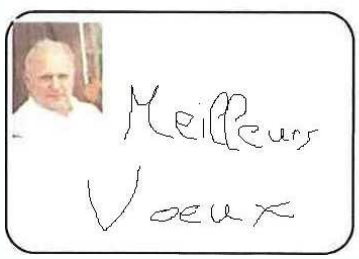 Meilleurs
Voeux